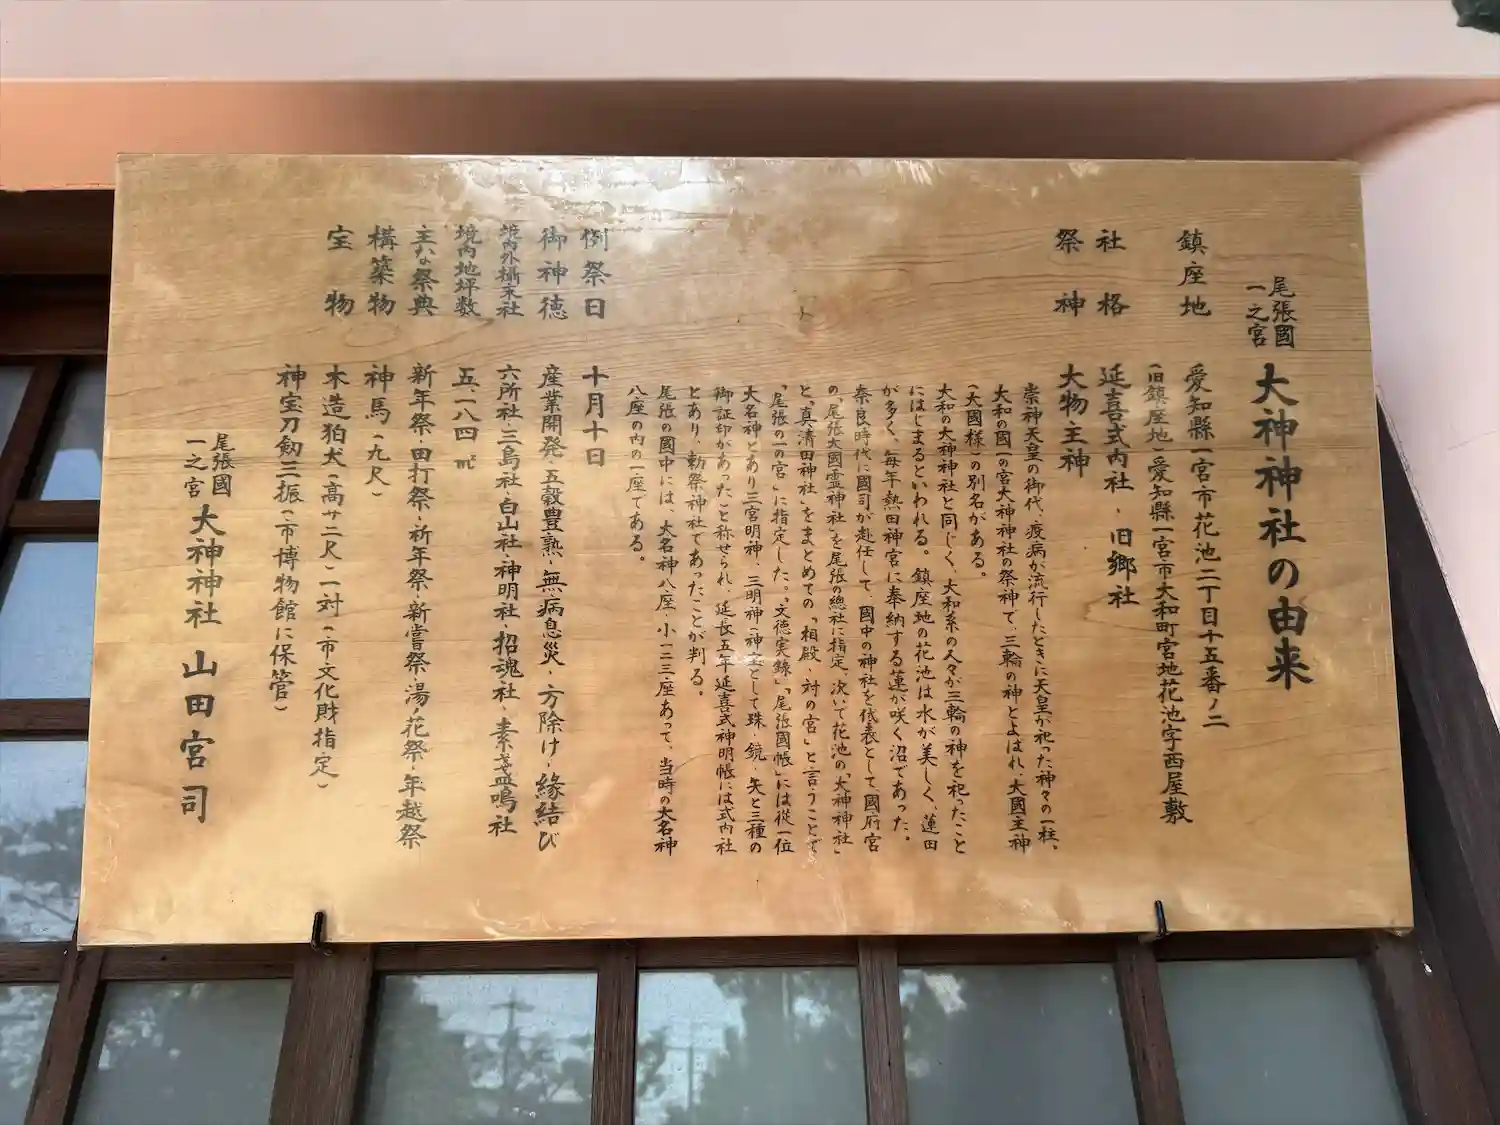 尾張國
一之宮 大神神社の由来
鎮座地 愛知縣一宮市花池二丁目十五番ノ二
(旧鎮座地)愛知縣一宮市大和町宮地花池字西屋敷
社格 延喜式内社・旧郷社
祭神 大物主神
崇神天皇の御代、疫病が流行したときに天皇が祀った神々の一柱、
大和の國一の宮大神神社の祭神で、三輪の神とよばれ、大國主神
(大國様)の別名がある。
大和の大神神社と同じく、大和系の人々が三輪の神を祀ったこと
にはじまるといわれる。鎮座地の花池は水が美しく、蓮田
が多く、毎年熱田神宮に奉納する蓮が咲く沼であった。
奈良時代に國司が赴任して、國中の神社を代表として國府宮
の「尾張大國霊神社」を尾張の總社に指定、次いで花池の「大神神社」
と「真清田神社」をまとめての「相殿・対の宮」と言うことで
「尾張の一の宮」に指定した。「文徳実錄」「尾張國帳」には従一位
大名神とあり三宮明神、三明神(神宝として珠・鏡・矢と三種の
御証印があったこと称せられ、延長五年延喜式神明帳には式内社
とあり、勅祭神社であったことが判る。
尾張の國中には、大名神八座、小一二三座あって、当時の大名神
八座の内の一座である。
例祭日 十月十日
御神徳 産業開発・五穀豊熟・無病息災・方除け・縁結び
境内外攝末社 六所社・三島社・白山社・神明社・招魂社・素盞鳴社
境内地坪数 五、一八四㎡
主な祭典 新年祭・田打祭・祈年祭・新嘗祭・湯ノ花祭・年越祭
構築物 神馬(九尺)
宝物 木造狛犬(高サ二尺)一対(市・文化財指定)
神宝刀劔三振(市博物館に保管)
尾張國
一之宮 大神神社 山田宮司